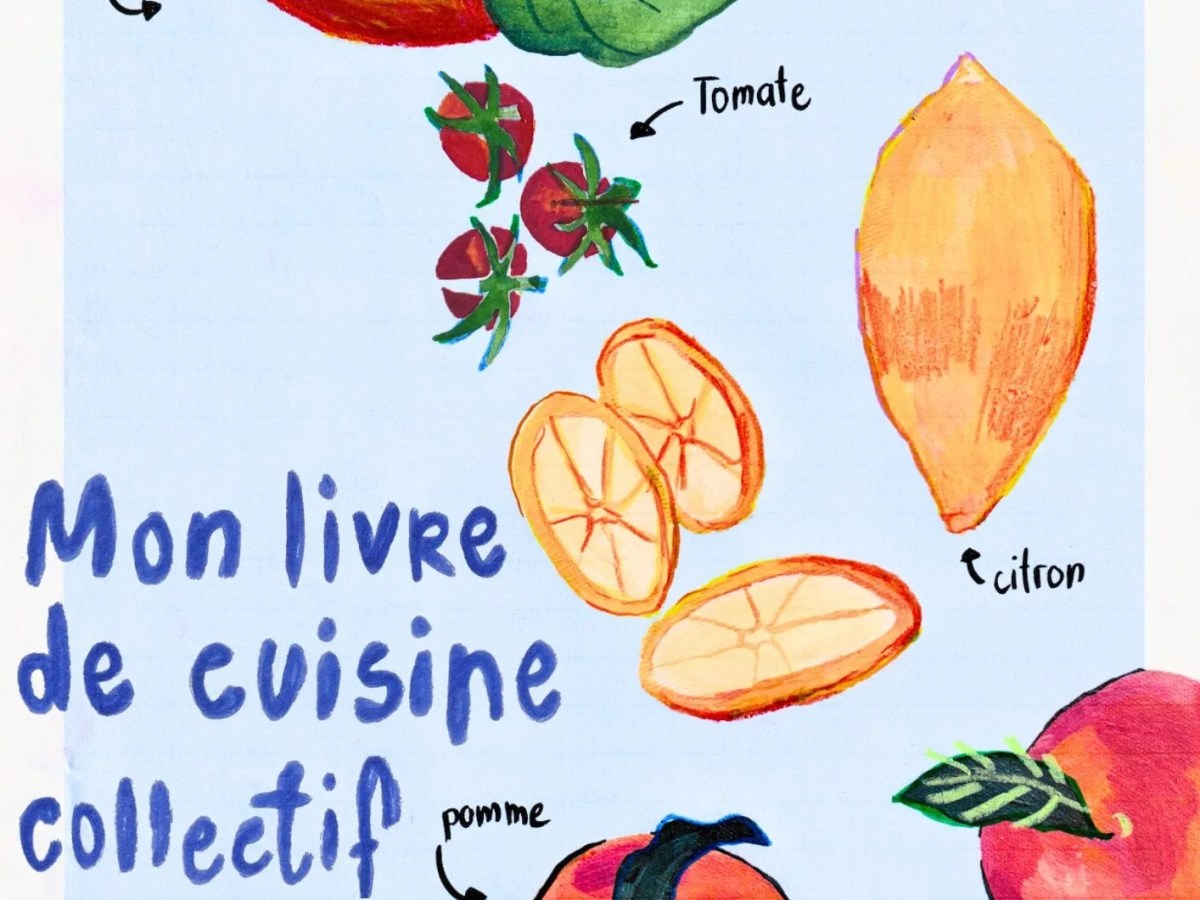 Tomate
citron
Mon livre
de cuisine
collectif
pomme